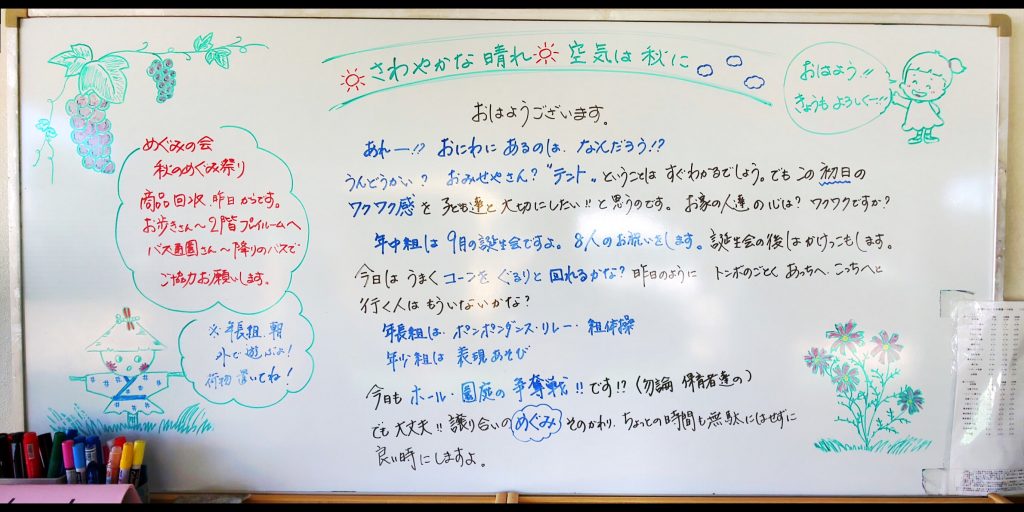 さわやかな晴れ 空気は秋に
おはよう!!
きょうもよろしくー!!
めぐみの会
秋のめぐみ祭り
商品回収 昨日からです。
お歩きさん～2階プレイルームへ
バス通園さん～降りのバスで
ご協力お願いします。
※年長組、朝
外で遊ぶよ!
荷物置いてね!
おはようございます。
あれー!? おにわに あるのは、なんだろう!?
うんどうかい? おみせやさん? "テント"。ということは すぐわかるでしょう。でもこの 初日の
ワクワク感を 子ども達と 大切にしたい!! と思うのです。お家の人達の心は? ワクワクですか?
年中組は 9月の誕生会ですよ。8人のお祝いをします。誕生会の後はかけっこもします。
今日は うまく コーンを ぐるりと 回れるかな? 昨日のように トンボのごとく あっちへ、こっちへと
行く人は もういないかな?
年長組は、ポンポンダンス・リレー・組体操
年少組は 表現あそび
今日も ホール・園庭の 争奪戦!! です!? (勿論 保育者達の)
でも 大丈夫!! 譲り合いの めぐみ そのかわり、ちょっとの時間も無駄にはせずに
良い時にしますよ。